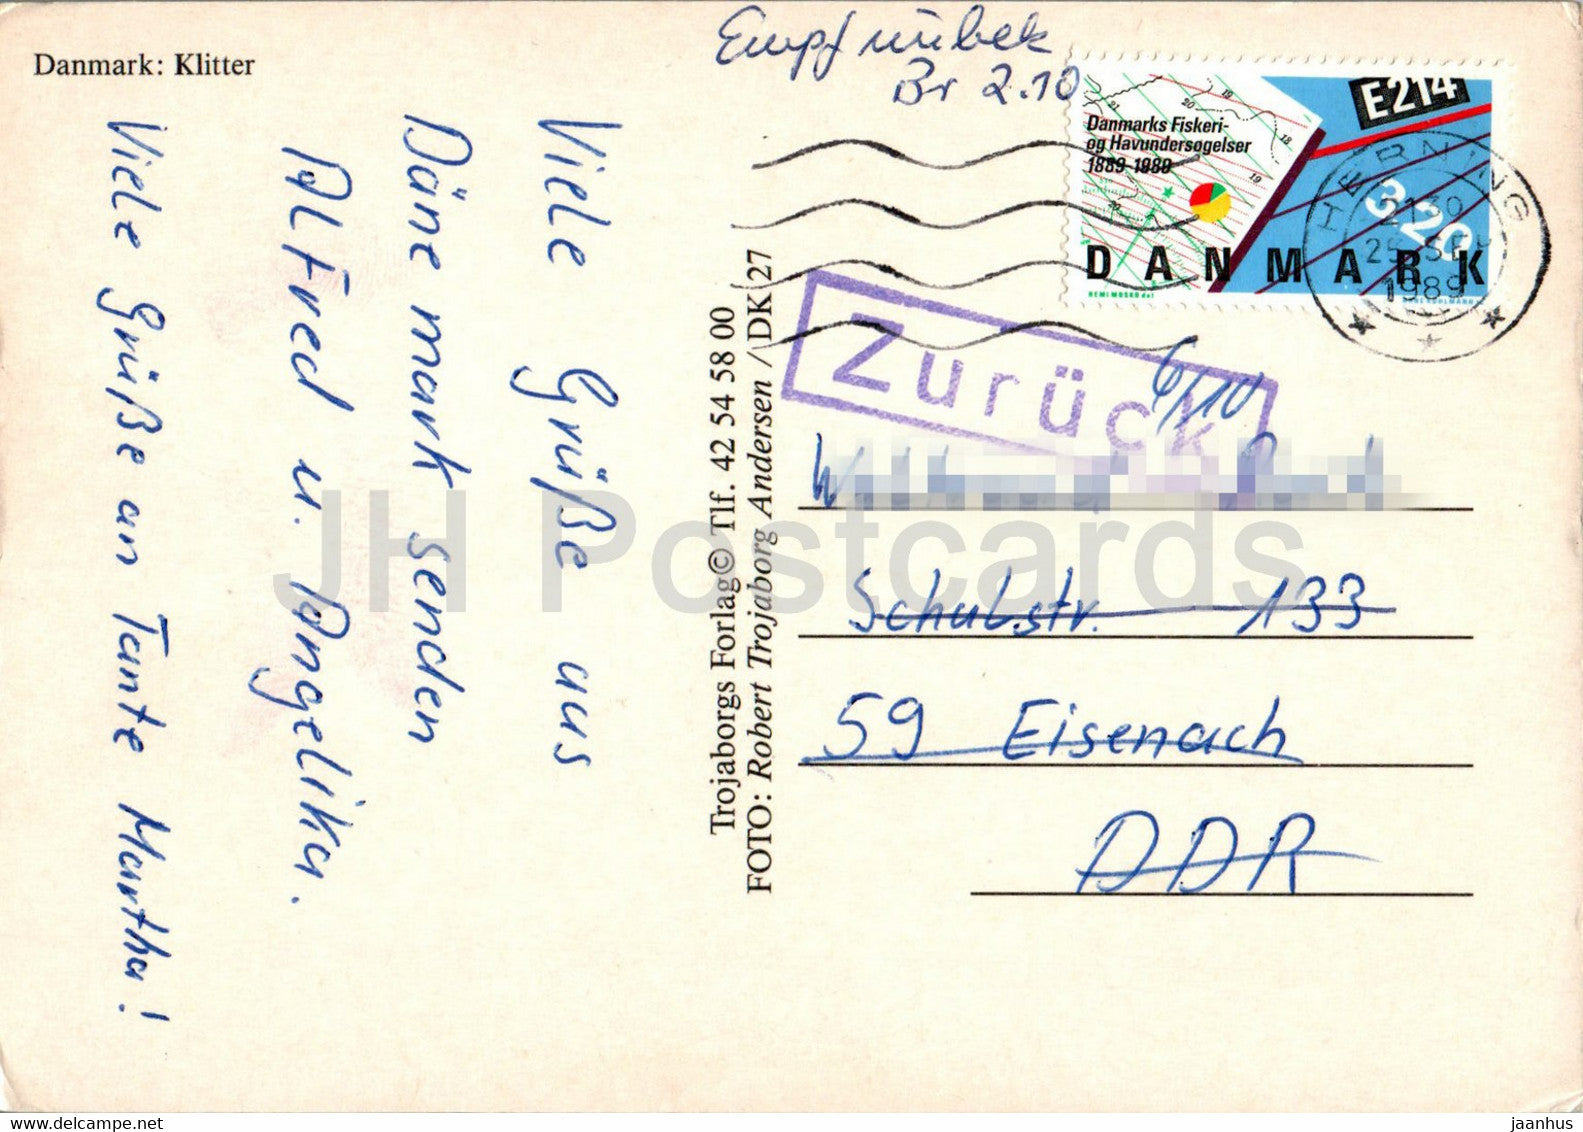 Danmark: Klitter
Empf unbek
Br 2.10
Viele Grüße aus
Dänemark senden
Alfred u. Angelika.
Viele Grüße an Tante Martha!
Trojaborgs Forlag© Tlf. 42 54 58 00
FOTO: Robert Trojaborg Andersen / DK 27
E214
Danmarks Fiskeri-
og Havundersøgelser
1889-1989
3.20
DANMARK
HERNING
2130
25 SEP
1989
Zurück
6/10
Schulstr. 133
59 Eisenach
DDR
JH Postcards
www.delcampe.net
jaanhus